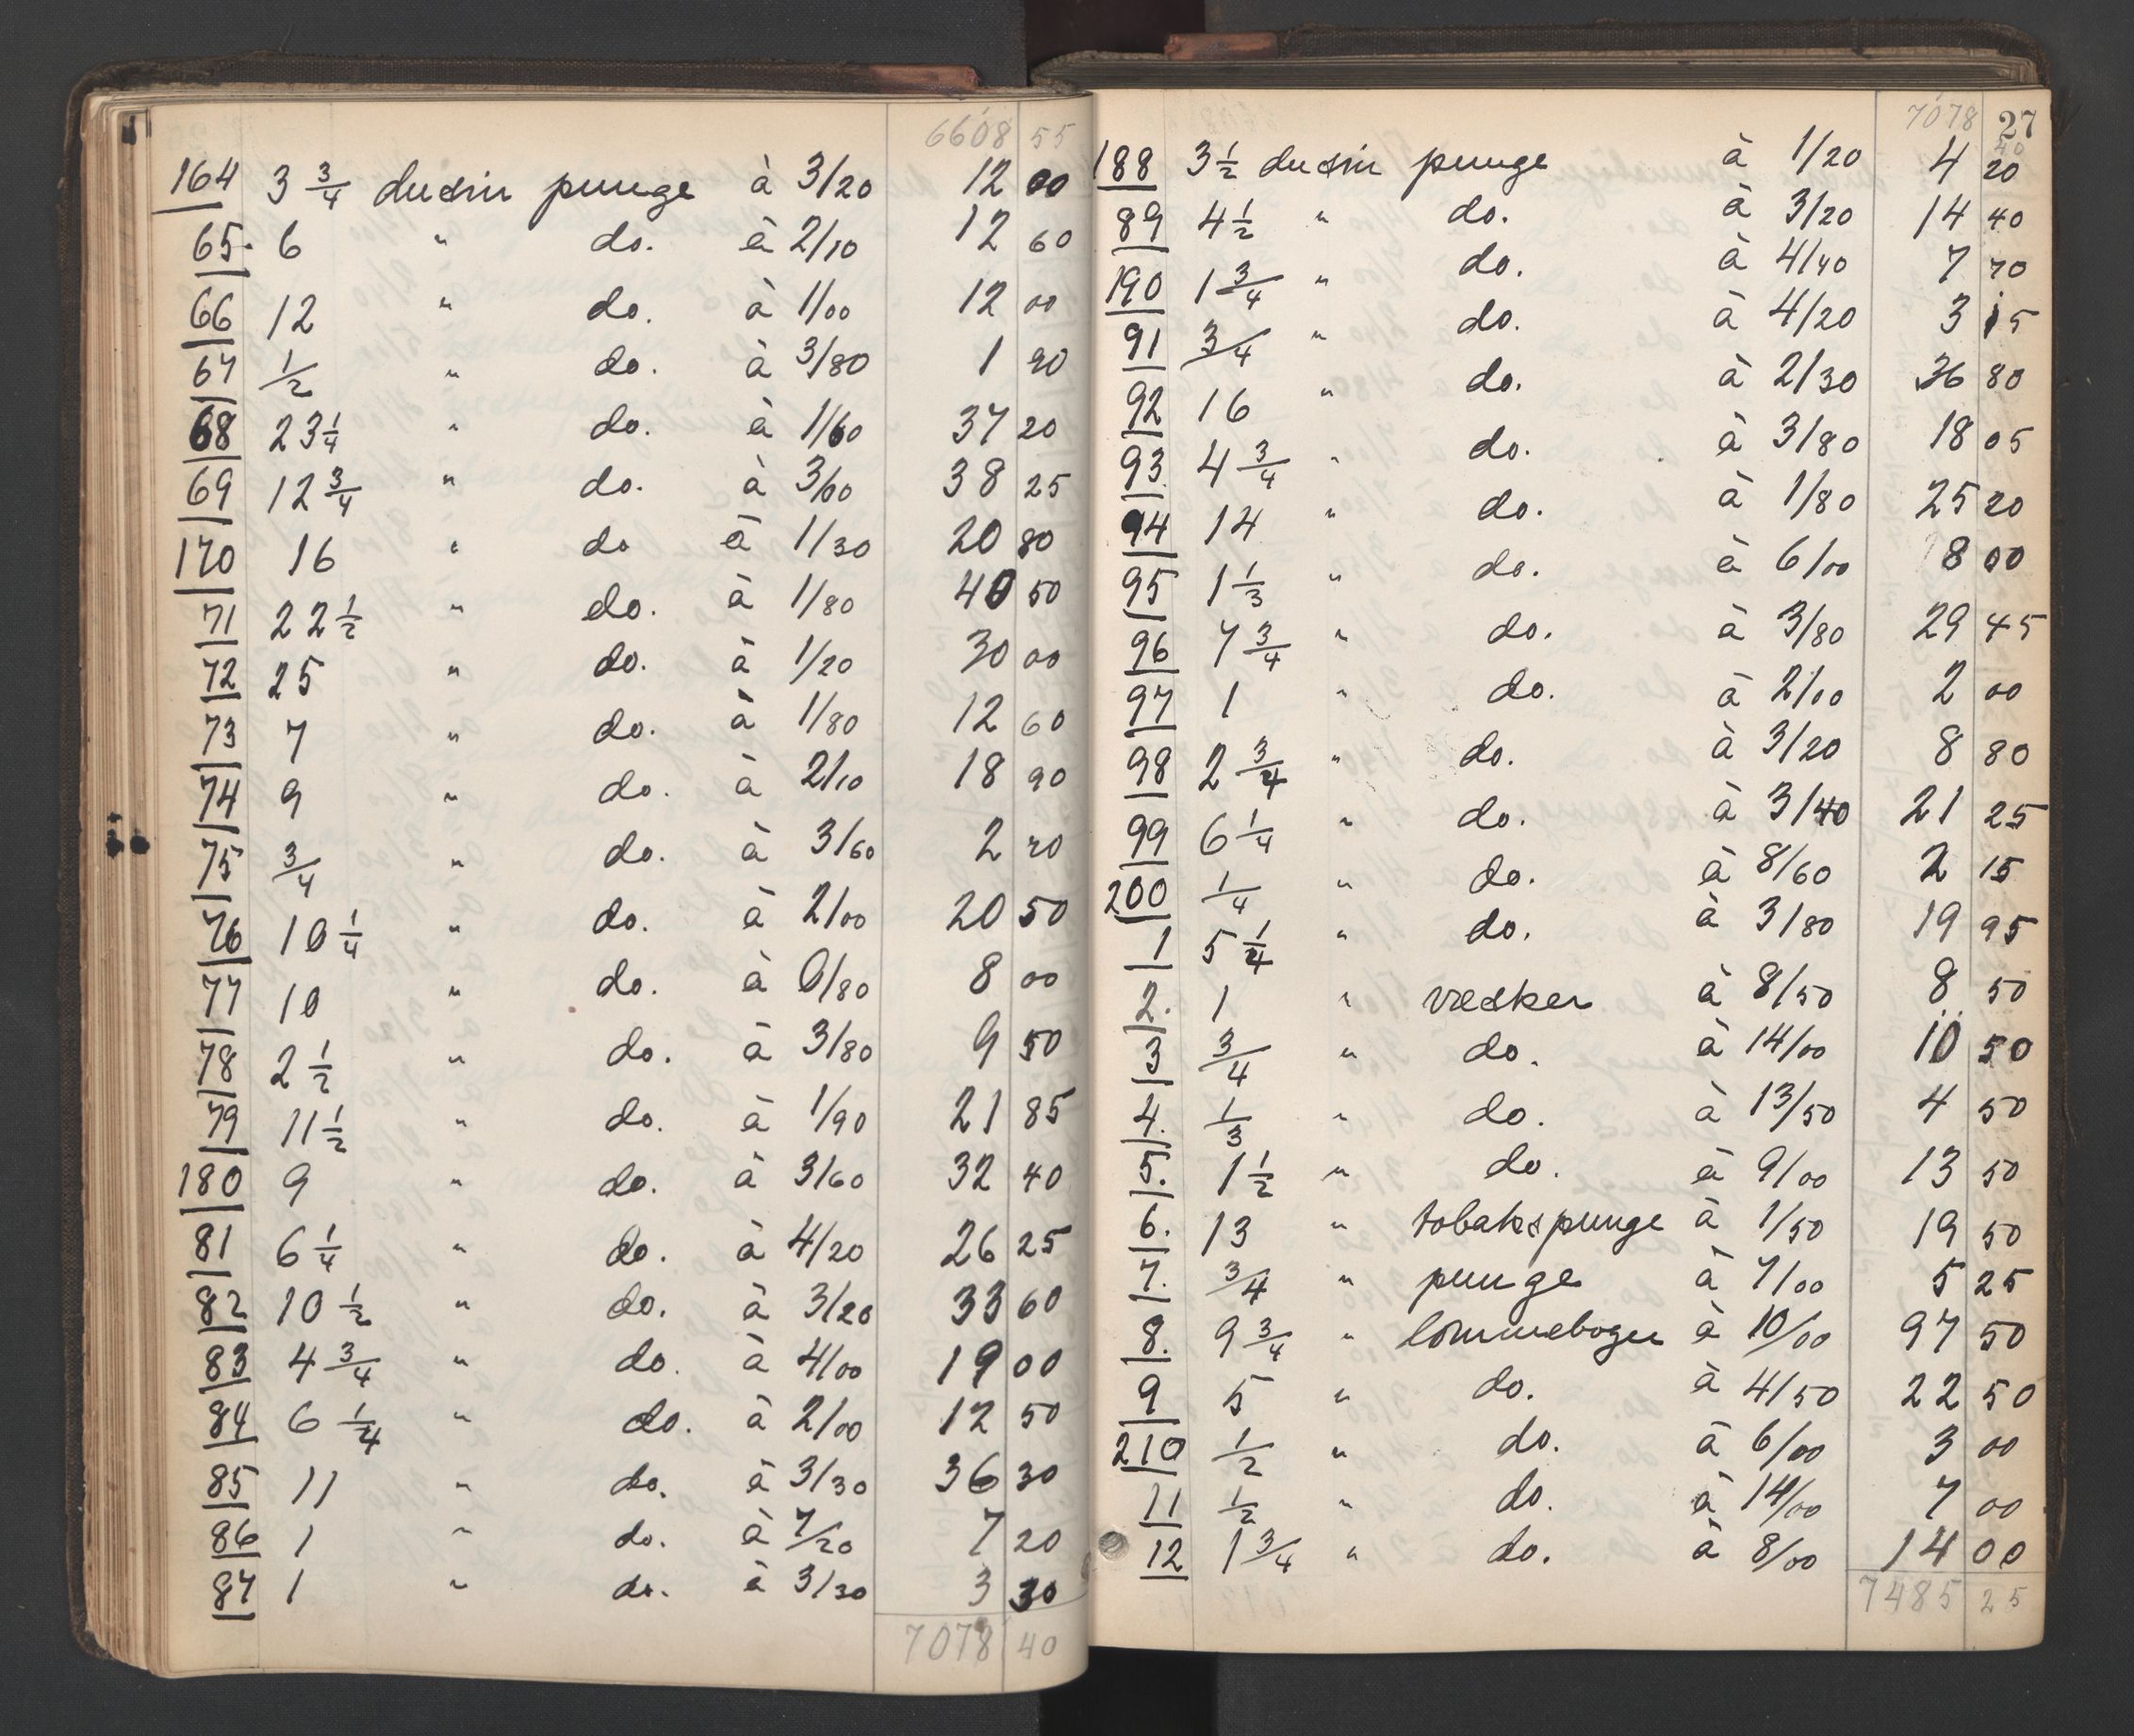 6608 55
164 3 3/4 dusin punge à 3/20 12 00
65. 6 " do. à 2/10 12 60
66 12 " do. à 1/00 12 00
67 1/2 " do. à 3/80 1 90
68 23 1/4 " do. à 1/60 37 20
69 12 3/4 " do. à 3/00 38 25
170 16 " do à 1/30 20 80
71 22 1/2 " do. à 1/80 40 50
72 25 " do. à 1/20 30 00
73 7 " do. à 1/80 12 60
74 9 " do. à 2/10 18 90
75 3/4 " do. à 3/60 2 70
76 10 1/4 " do. à 2/00 20 50
77 10 " do. à 0/80 8 00
78 2 1/2 " do. à 3/80 9 50
79 11 1/2 " do. à 1/90 21 85
180 9 " do. à 3/60 32 40
81 6 1/4 " do. à 4/20 26 25
82 10 1/2 " do. à 3/20 33 60
83 4 3/4 " do. à 4/00 19 00
84 6 1/4 " do. à 2/00 12 50
85 11 " do. à 3/30 36 30
86 1 " do. à 7/20 7 20
87 1 " do. à 3/30 3 30
7078 40
7078 40
27
188 3 1/2 dusin punge à 1/20 4 20
89 4 1/2 " do. à 3/20 14 40
190 1 3/4 " do. à 4/40 7 70
91 3/4 " do. à 4/20 3 15
92 16 " do. à 2/30 36 80
93. 4 3/4 " do. à 3/80 18 05
94 14 " do. à 1/80 25 20
95 1 1/3 " do. à 6/00 8 00
96 7 3/4 " do. à 3/80 29 45
97 1 " do. à 2/00 2 00
98 2 3/4 " do. à 3/20 8 80
99 6 1/4 " do. à 3/40 21 25
200 1/4 " do. à 8/60 2 15
1 5 1/4 " do. à 3/80 19 95
2. 1 " vesker à 8/50 8 50
3 3/4 " do. à 14/00 10 50
4. 1/3 " do. à 13/50 4 50
5. 1 1/2 " do. à 9/00 13 50
6. 13 " tobakspunge à 1/50 19 50
7. 3/4 " punge à 7/00 5 25
8. 9 3/4 " lommebøger à 10/00 97 50
9 5 " do. à 4/50 22 50
210 1/2 " do. à 6/00 3 00
11 1/2 " do. à 14/00 7 00
12 1 3/4 " do. à 8/00 14 00
7485 25